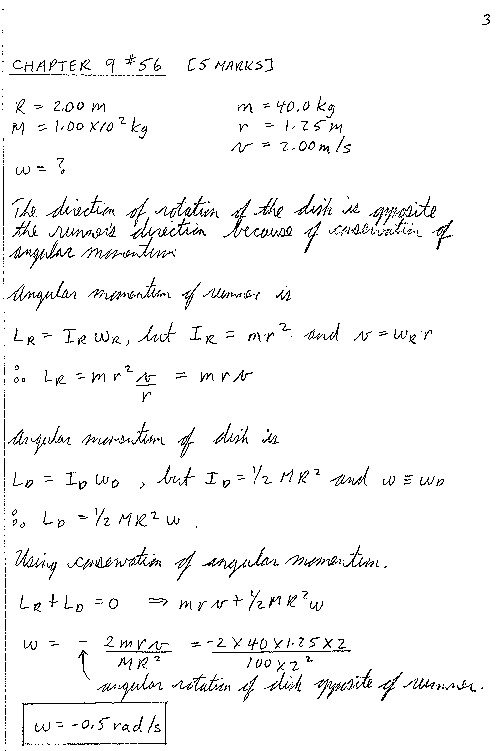 3
CHAPTER 9 #56 [5 MARKS]
R = 2.00 m m = 40.0 kg
M = 1.00 X10² kg r = 1.25 m
v = 2.00 m/s
w = ?
The direction of rotation of the disk is opposite
the runner's direction because of conservation of
angular momentum.
Angular momentum of runner is
L_R = I_R w_R, but I_R = mr² and v = w_R r
∴ L_R = mr² v/r = mrv
Angular momentum of disk is
L_D = I_D w_D , but I_D = 1/2 MR² and w ≡ w_D
∴ L_D = 1/2 MR² w .
Using conservation of angular momentum.
L_R + L_D = 0 ⇒ mrv + 1/2 MR² w
w = - 2mrv/MR² = -2 X 40 X 1.25 X 2/100 X 2²
↑ angular rotation of disk opposite of runner.
w = -0.5 rad/s